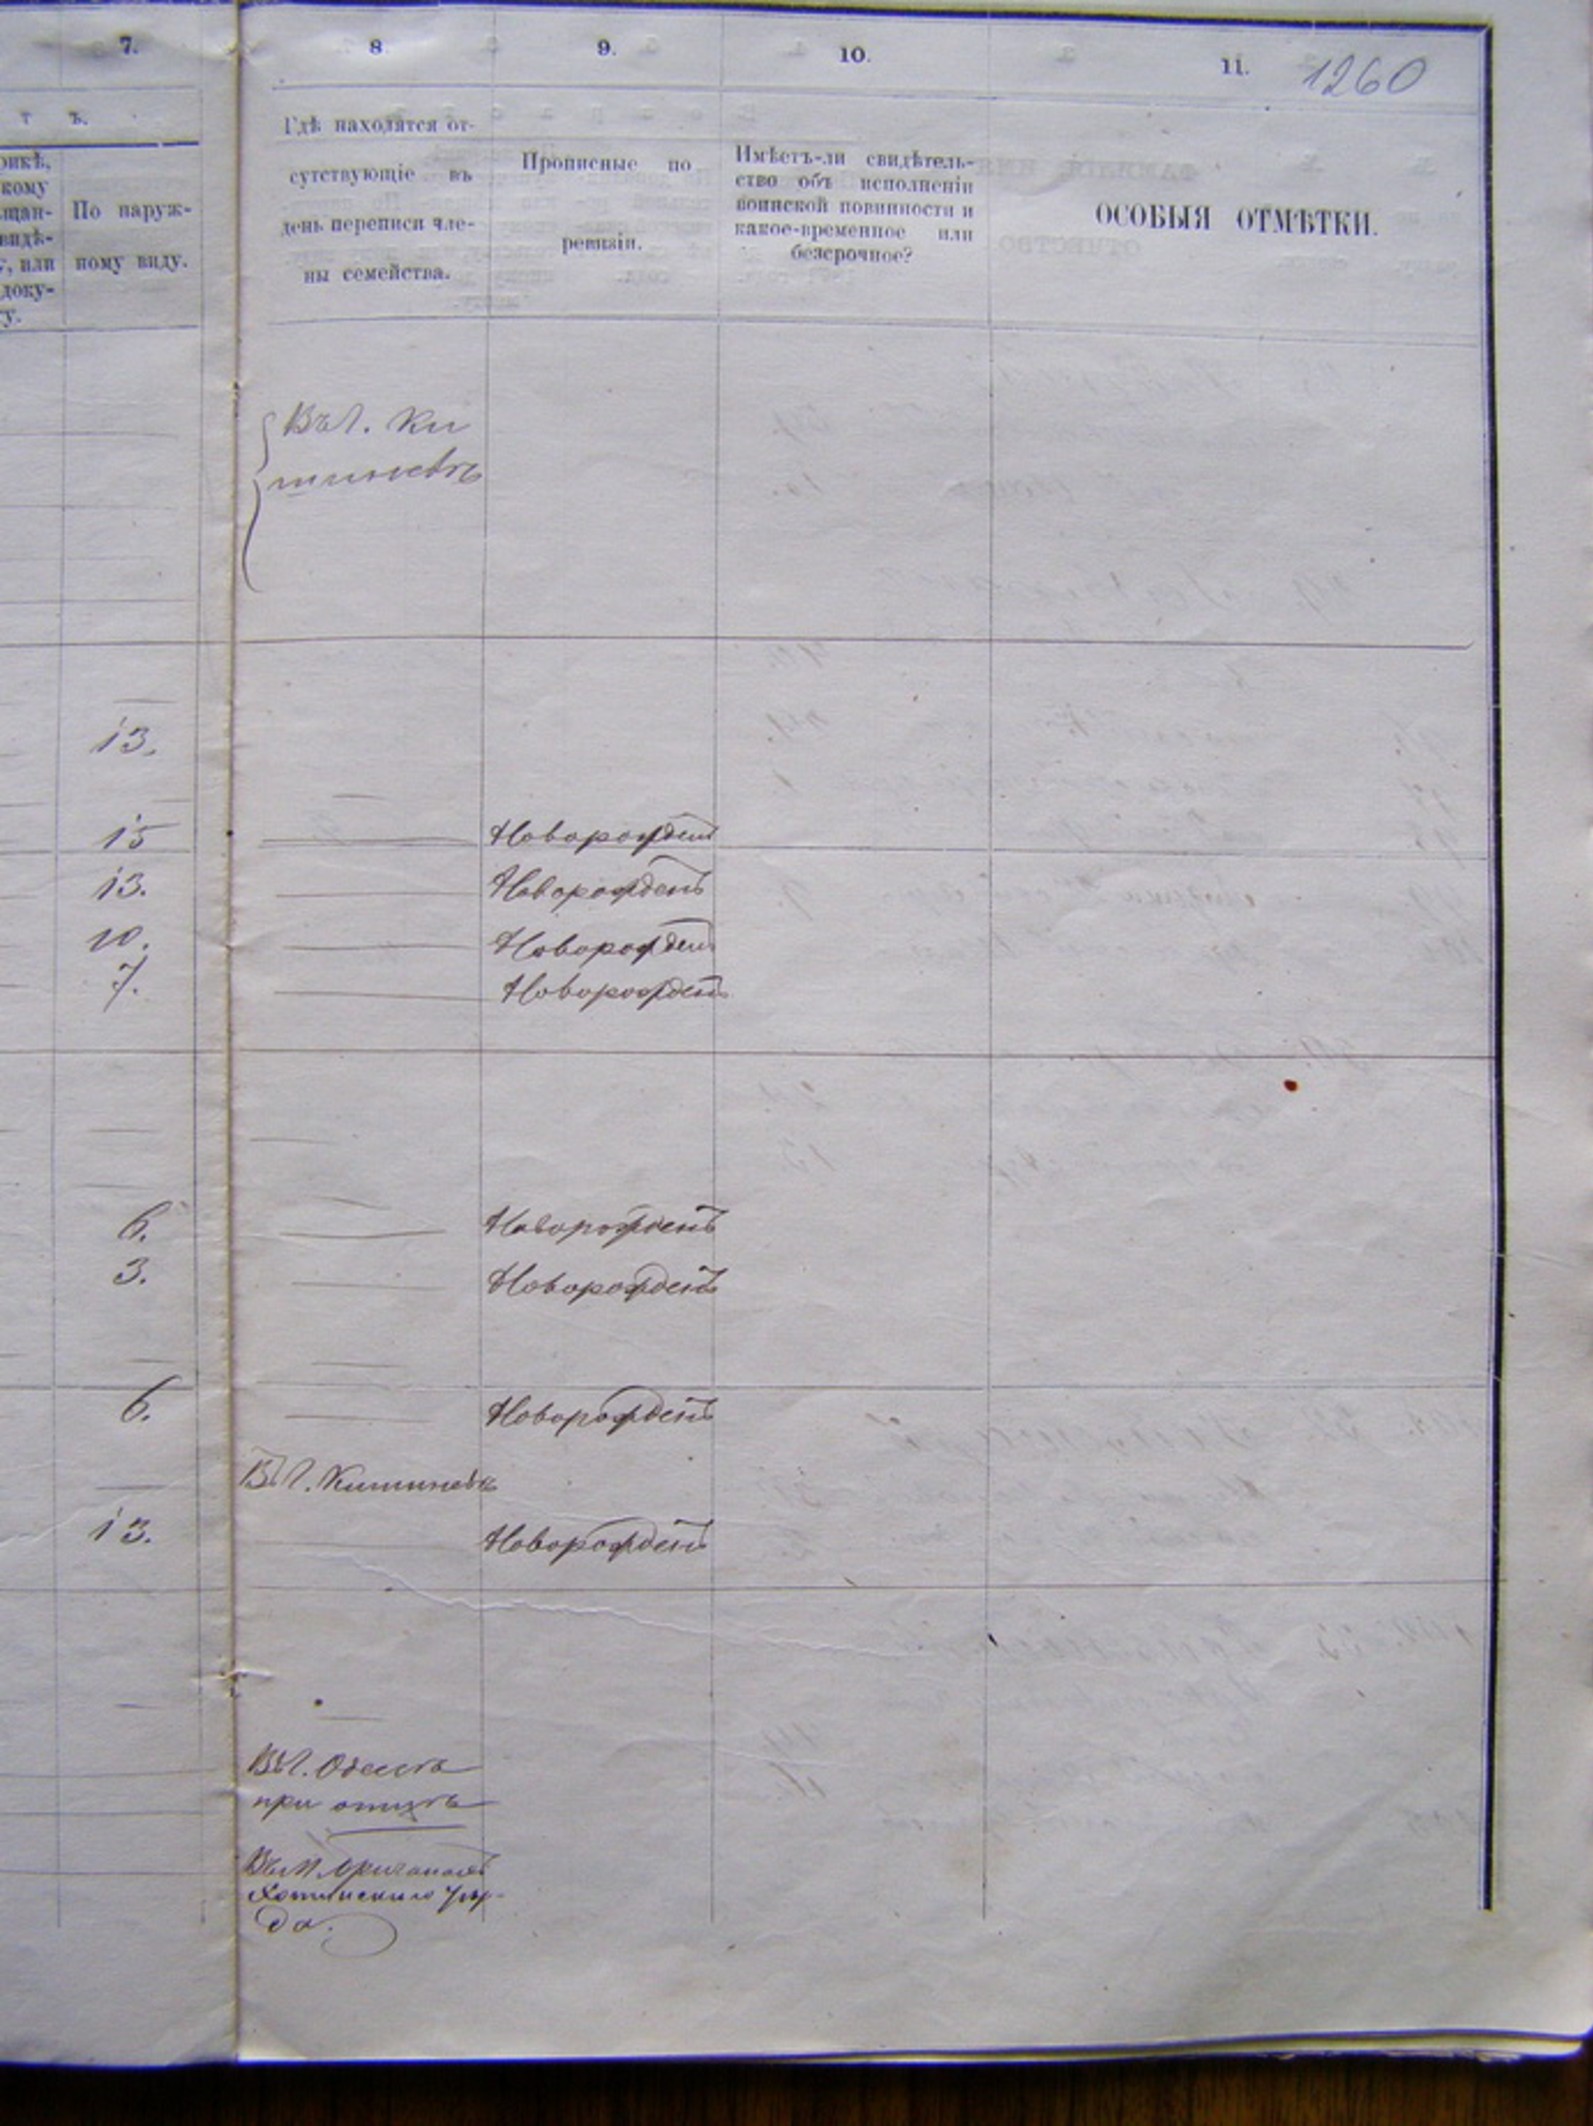 7. 8. 9. 10. 11. 1260
т ъ.
рикѣ,
кому
щан-
видѣ-
, или
доку-
у.
По наруж-
ному виду.
Гдѣ находятся от-
сутствующіе въ
день переписи чле-
ны семейства.
Прописные по
ревизіи.
Имѣетъ-ли свидѣтель-
ство объ исполненіи
воинской повинности и
какое-временное или
безсрочное?
ОСОБЫЯ ОТМѢТКИ.
Въ г. Ки
шиневѣ
13.
15 Новорожденъ
13. Новорожденъ
10. Новорожденъ
7. Новорожденъ
6. Новорожденъ
3. Новорожденъ
6. Новорожденъ
Въ г. Кишиневѣ
13. Новорожденъ
Въ г. Одессѣ
при
Въ м. Бричанахъ
Хотинскаго уѣз-
да.